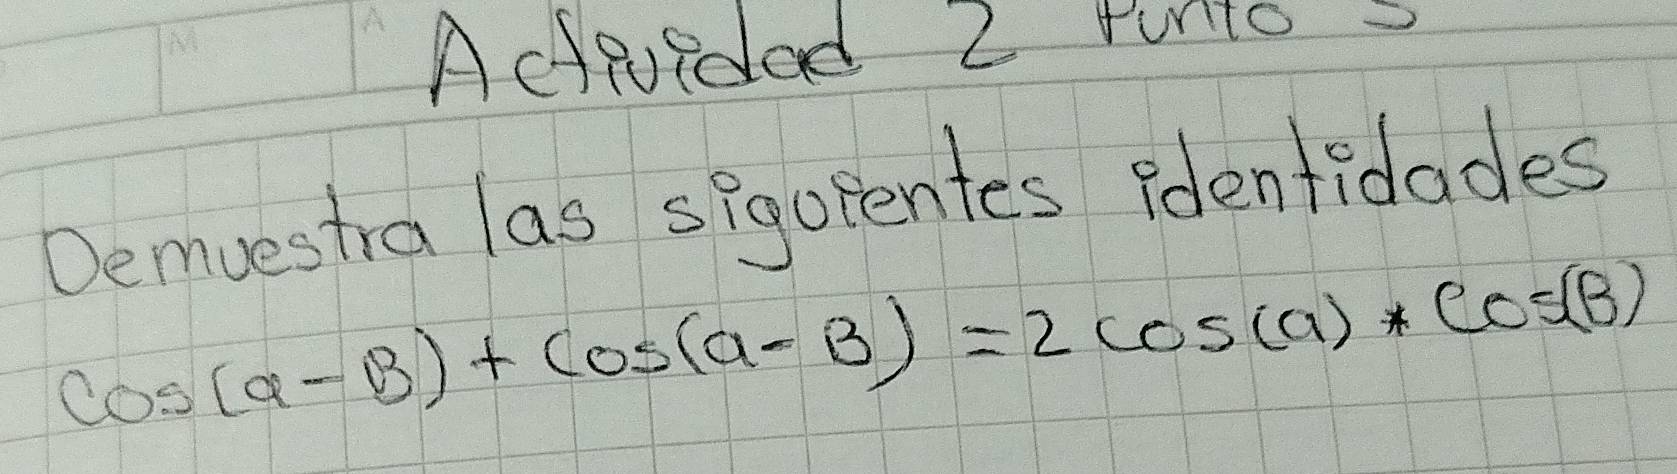 Actividad 2 Punto
Demuestra las siguientes identidades
Cos(a-B)+Cos(a-B)=2cos(a)*Cos(B)